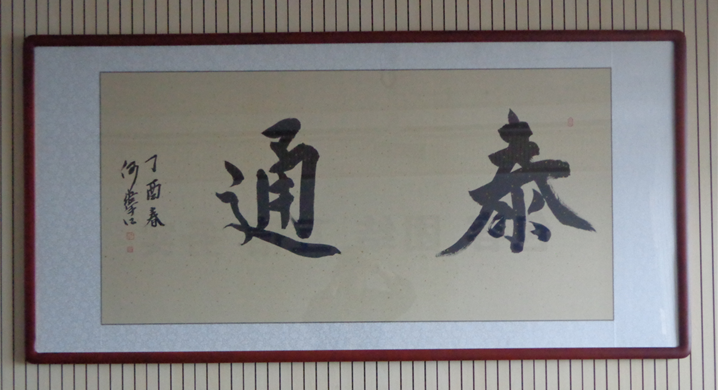 泰通
丁酉春